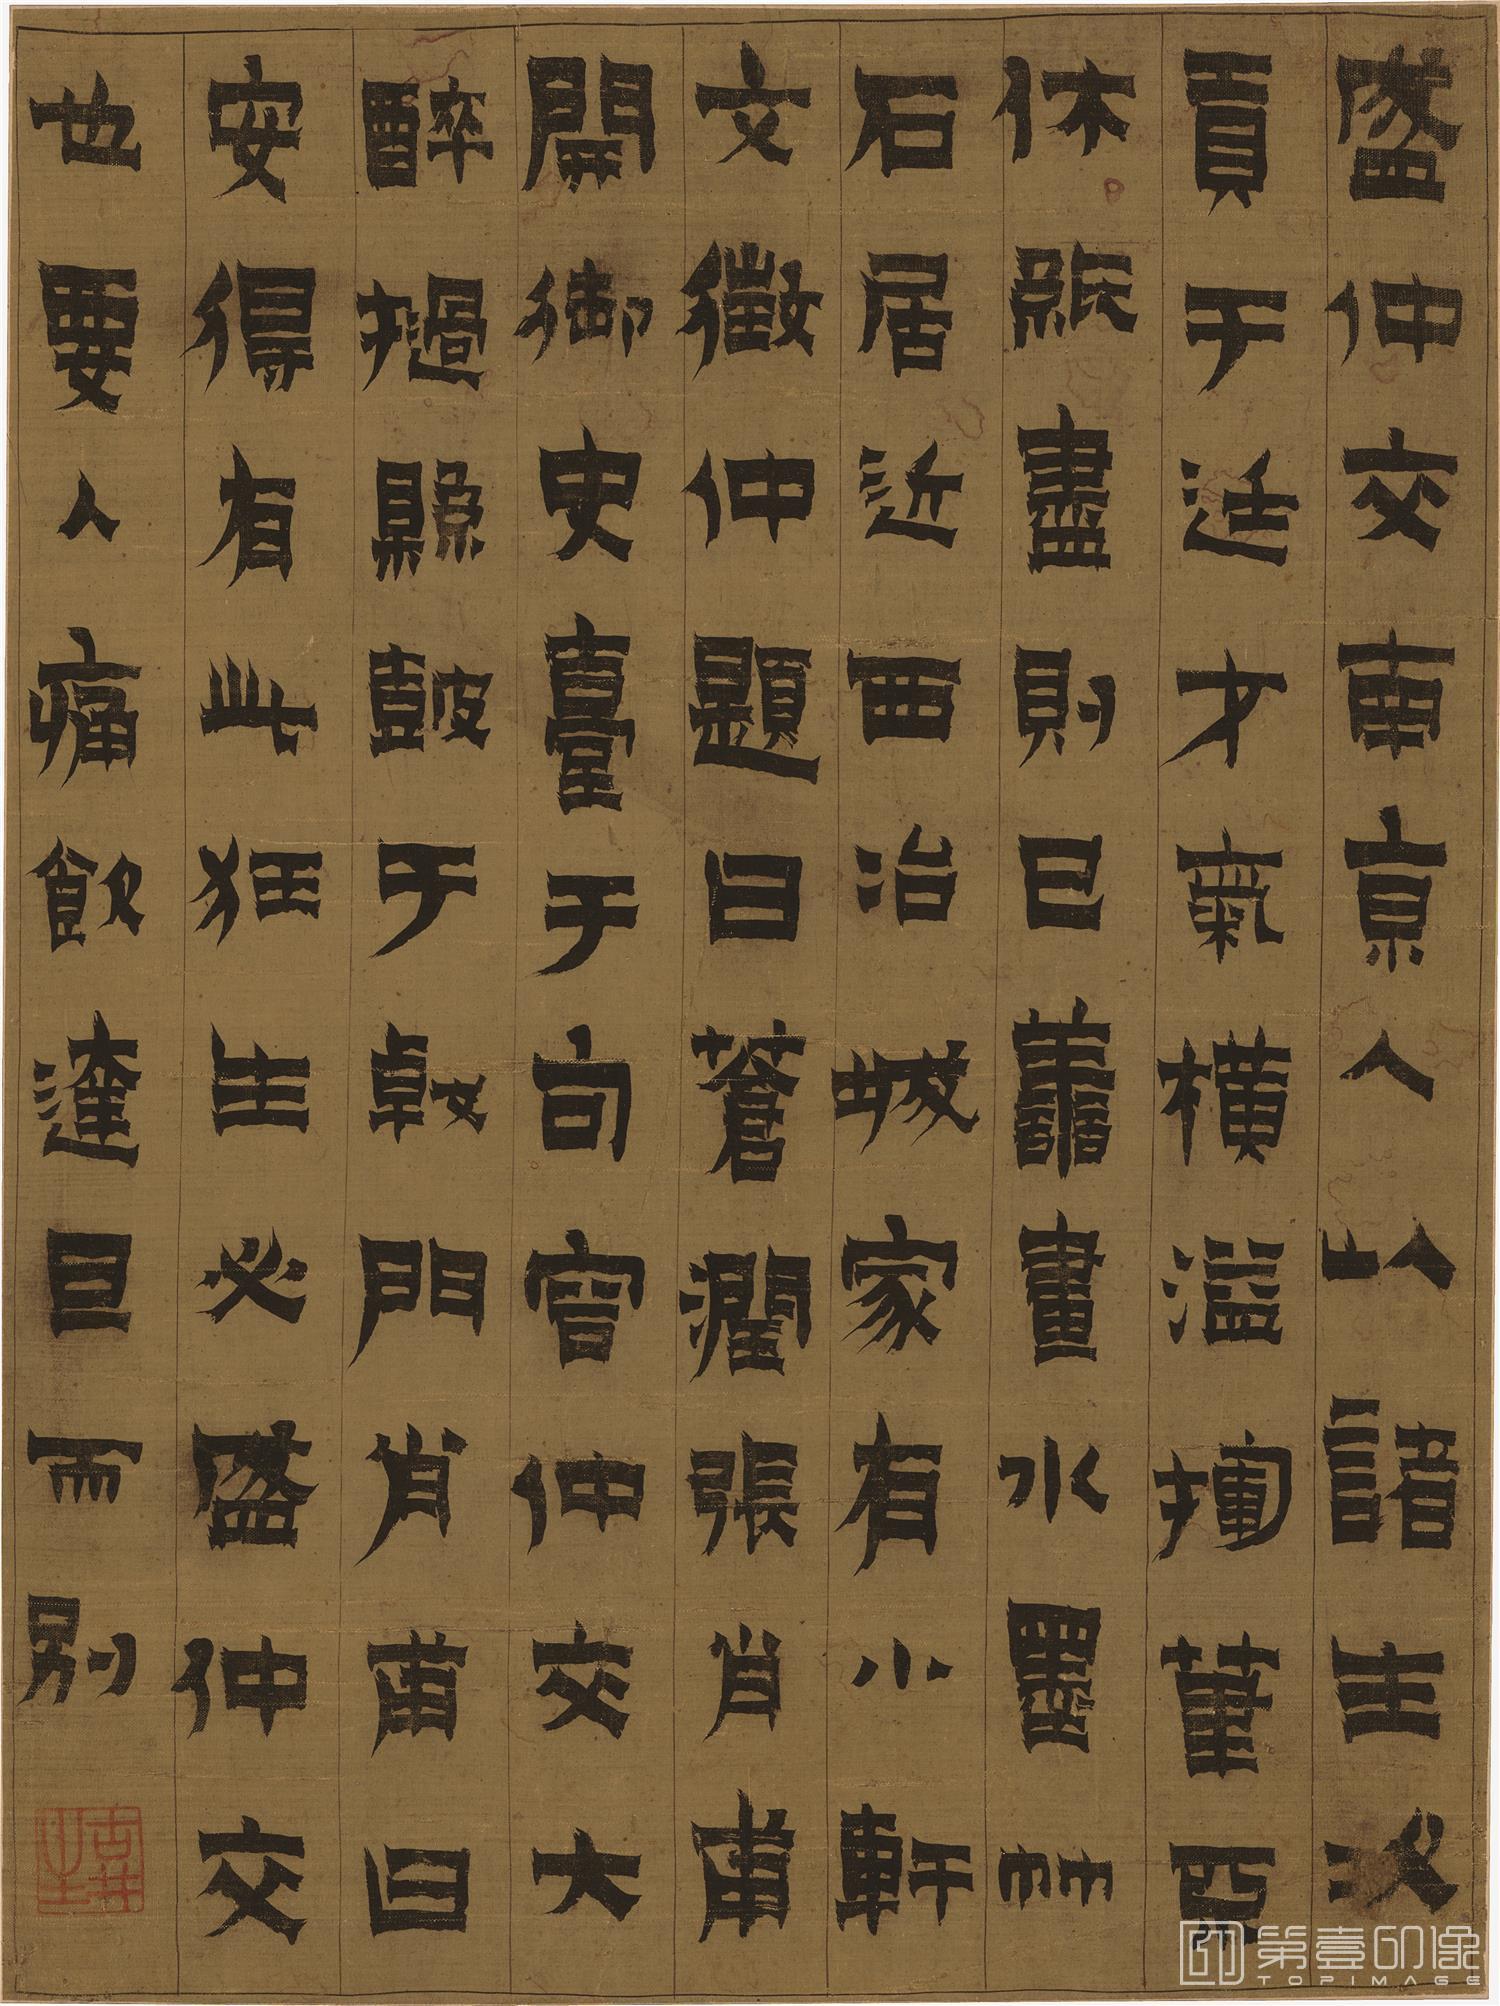 盛仲交南京人以諸生次
貢于廷才氣橫溢揮筆不
休紙盡則已善畫水墨竹
石居近西冶城家有小軒
文徵仲題曰蒼潤張肖甫
開御史臺于句容仲交大
醉撾縣鼓于戟門肖甫曰
安得有此狂生必盛仲交
也要入痛飲達旦而別
第壹印像
TOPIMAGE